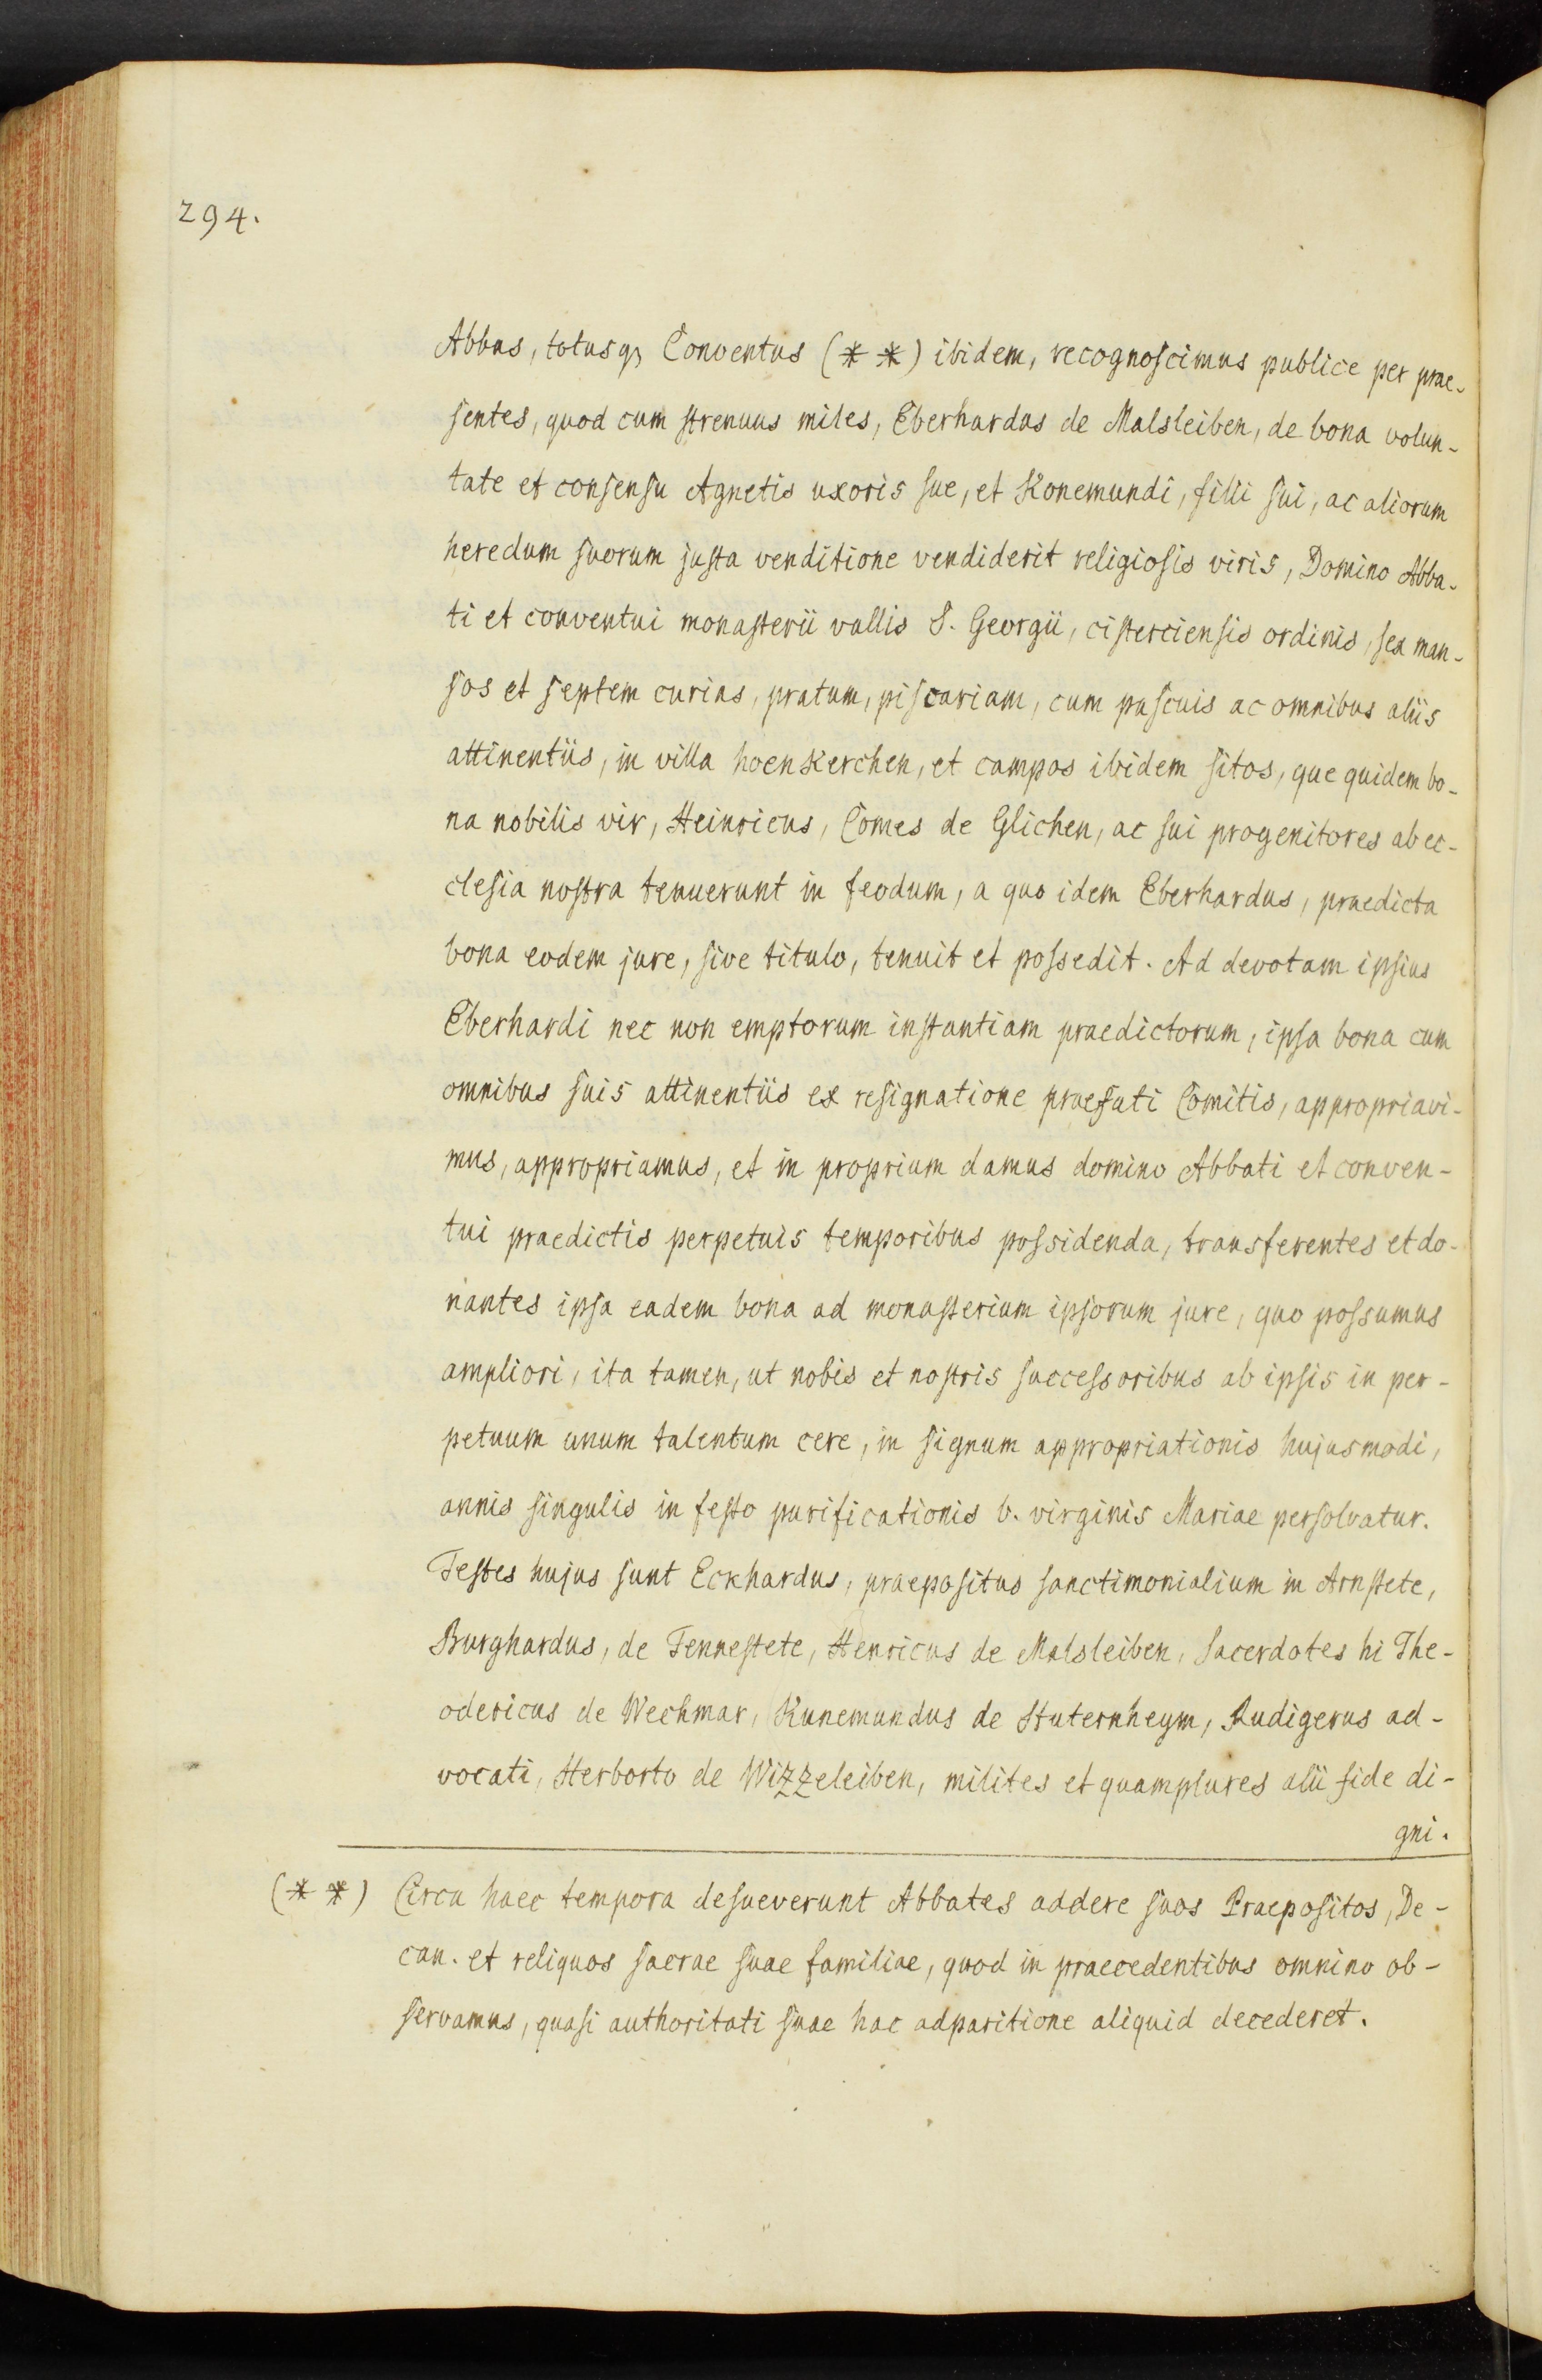 294.
Abbas, totusq₃ Conventus (* *) ibidem, recognoscimus publice per prae-
sentes, quod cum strenuus miles, Eberhardus de Malsleiben, de bona volun-
tate et consensu Agnetis uxoris sue, et Konemundi, filii sui, ac aliorum
heredum suorum justa venditione vendiderit religiosis viris, Domino Abba-
ti et conventui monasterii vallis S. Georgii, cisterciensis ordinis, sex man-
sos et septem curias, pratum, piscariam, cum pascuis ac omnibus aliis
attinentiis, in villa hoenkerchen, et campos ibidem sitos, que quidem bo-
na nobilis vir, Heinricus, Comes de Glichen, ac sui progenitores ab ec-
clesia nostra tenuerunt in feodum, a quo idem Eberhardus, praedicta
bona eodem jure, sive titulo, tenuit et possedit. Ad devotam ipsius
Eberhardi nec non emptorum instantiam praedictorum, ipsa bona cum
omnibus suis attinentiis ex resignatione praefati Comitis, appropriavi-
mus, appropriamus, et in proprium damus domino Abbati et conven-
tui praedictis perpetuis temporibus possidenda, transferentes et do-
nantes ipsa eadem bona ad monasterium ipsorum jure, quo possumus
ampliori, ita tamen, ut nobis et nostris successoribus ab ipsis in per-
petuum unum talentum cere, in signum appropriationis hujusmodi,
annis singulis in festo purificationis b. virginis Mariae persolvatur.
Testes hujus sunt Eckhardus, praepositus sanctimonialium in Arnstete,
Burghardus, de Tennestete, Henricus de Malsleiben, Sacerdotes hi The-
odericus de Wechmar, Kunemundus de Stuternheym, Rudigerus ad-
vocati, Herborto de Wizzeleiben, milites et quamplures alii fide di-
gni.
(* *) Circa haec tempora desueverunt Abbates addere suos Praepositos, De-
can. et reliquos sacrae suae familiae, quod in praecedentibus omnino ob-
servamus, quasi authoritati suae hac adparitione aliquid decederet.